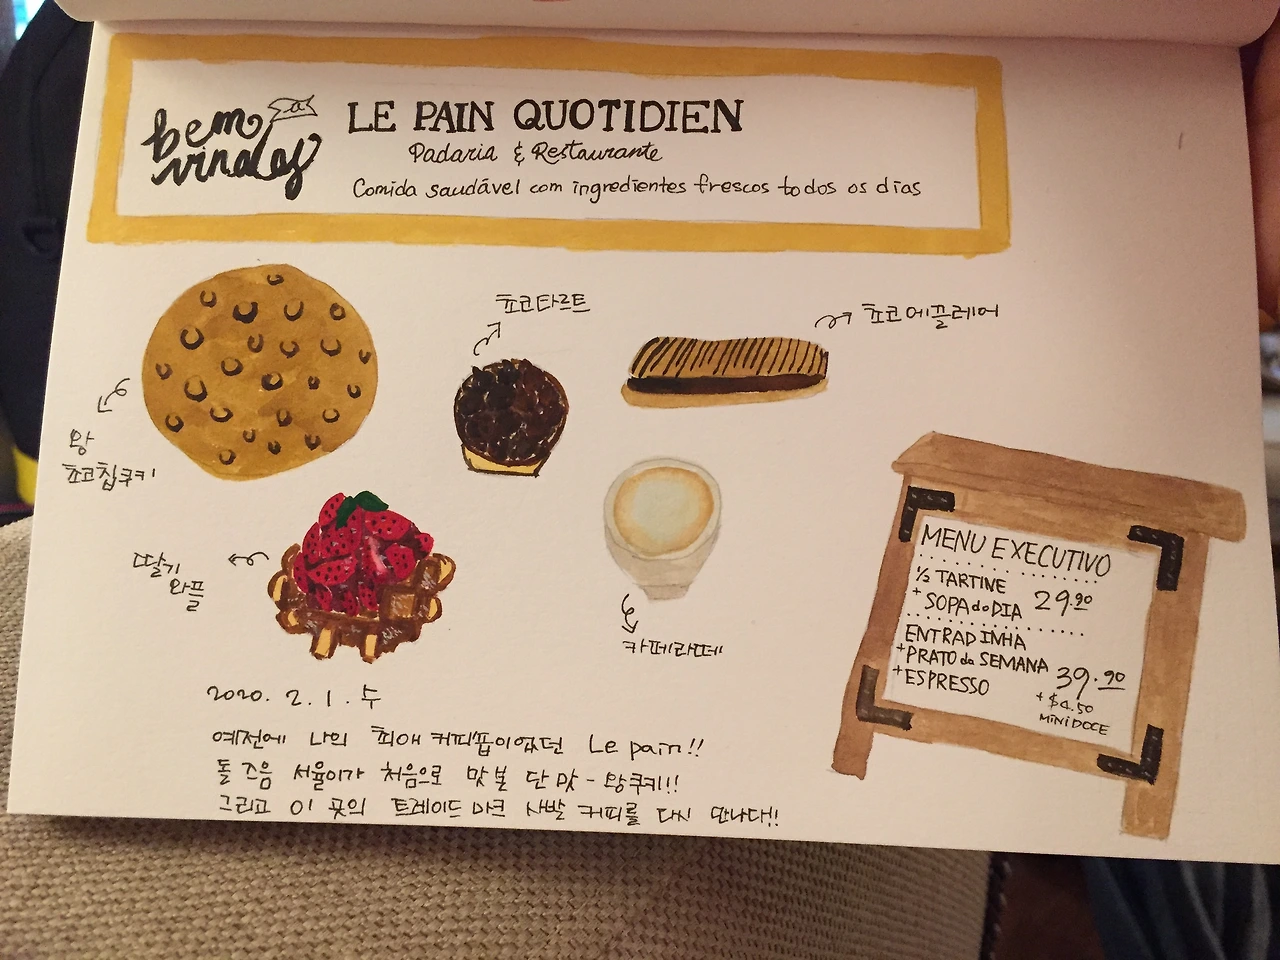 bem vindos
LE PAIN QUOTIDIEN
Padaria & Restaurante
Comida saudável com ingredientes frescos todos os dias
쵸코타르트
쵸코에끌레어
왕
쵸코칩쿠키
딸기
와플
카페라떼
MENU EXECUTIVO
½ TARTINE
+ SOPA do DIA 29.90
ENTRADINHA
+PRATO da SEMANA
+ESPRESSO 39.90
+ $4.50
MINI DOCE
2020. 2. 1. 수
예전에 나의 최애 커피숍이였던 Le pain!!
돌 즈음 서율이가 처음으로 맛 본 단 맛 - 왕쿠키!!
그리고 이 곳의 트레이드 마크 사발 커피를 다시 만나다!!